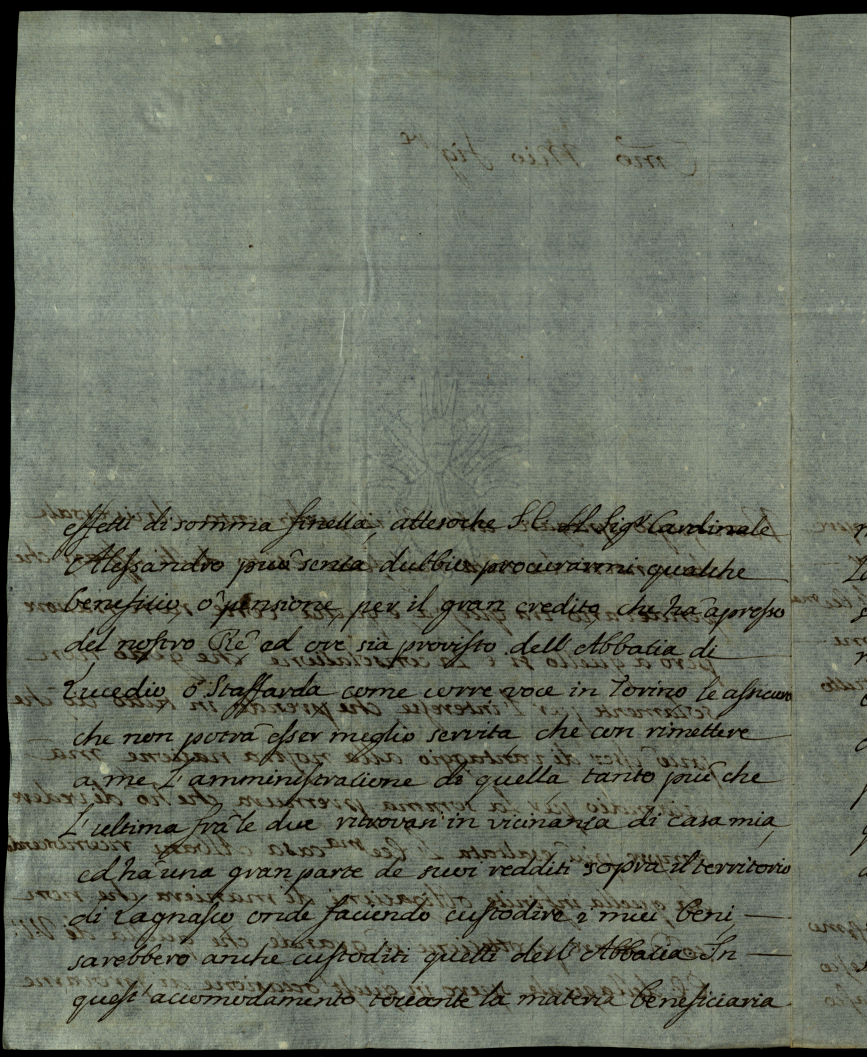 effetti di somma finella, attesoche S. E. il Sigr Cardinale
Alessandro può senza dubbio procurarmi qualche
benefitio ò pensione per il gran credito che hà apresso
del nostro Rè ed ove sia provisto dell'Abbatia di
Lucedio ò Staffarda come corre voce in Torino le assicuro
che non potrà esser meglio servita che con rimettere
a me l'amministratione di quella tanto più che
l'ultima frà le due ritrovasi in vicinanza di casa mia,
ed hà una gran parte de suoi redditi sopra il territorio
di Lagnasco onde facendo custodire i miei beni
sarebbero anche custoditi quelli dell'Abbatia In
quest'accomodamento toccante la materia beneficiaria